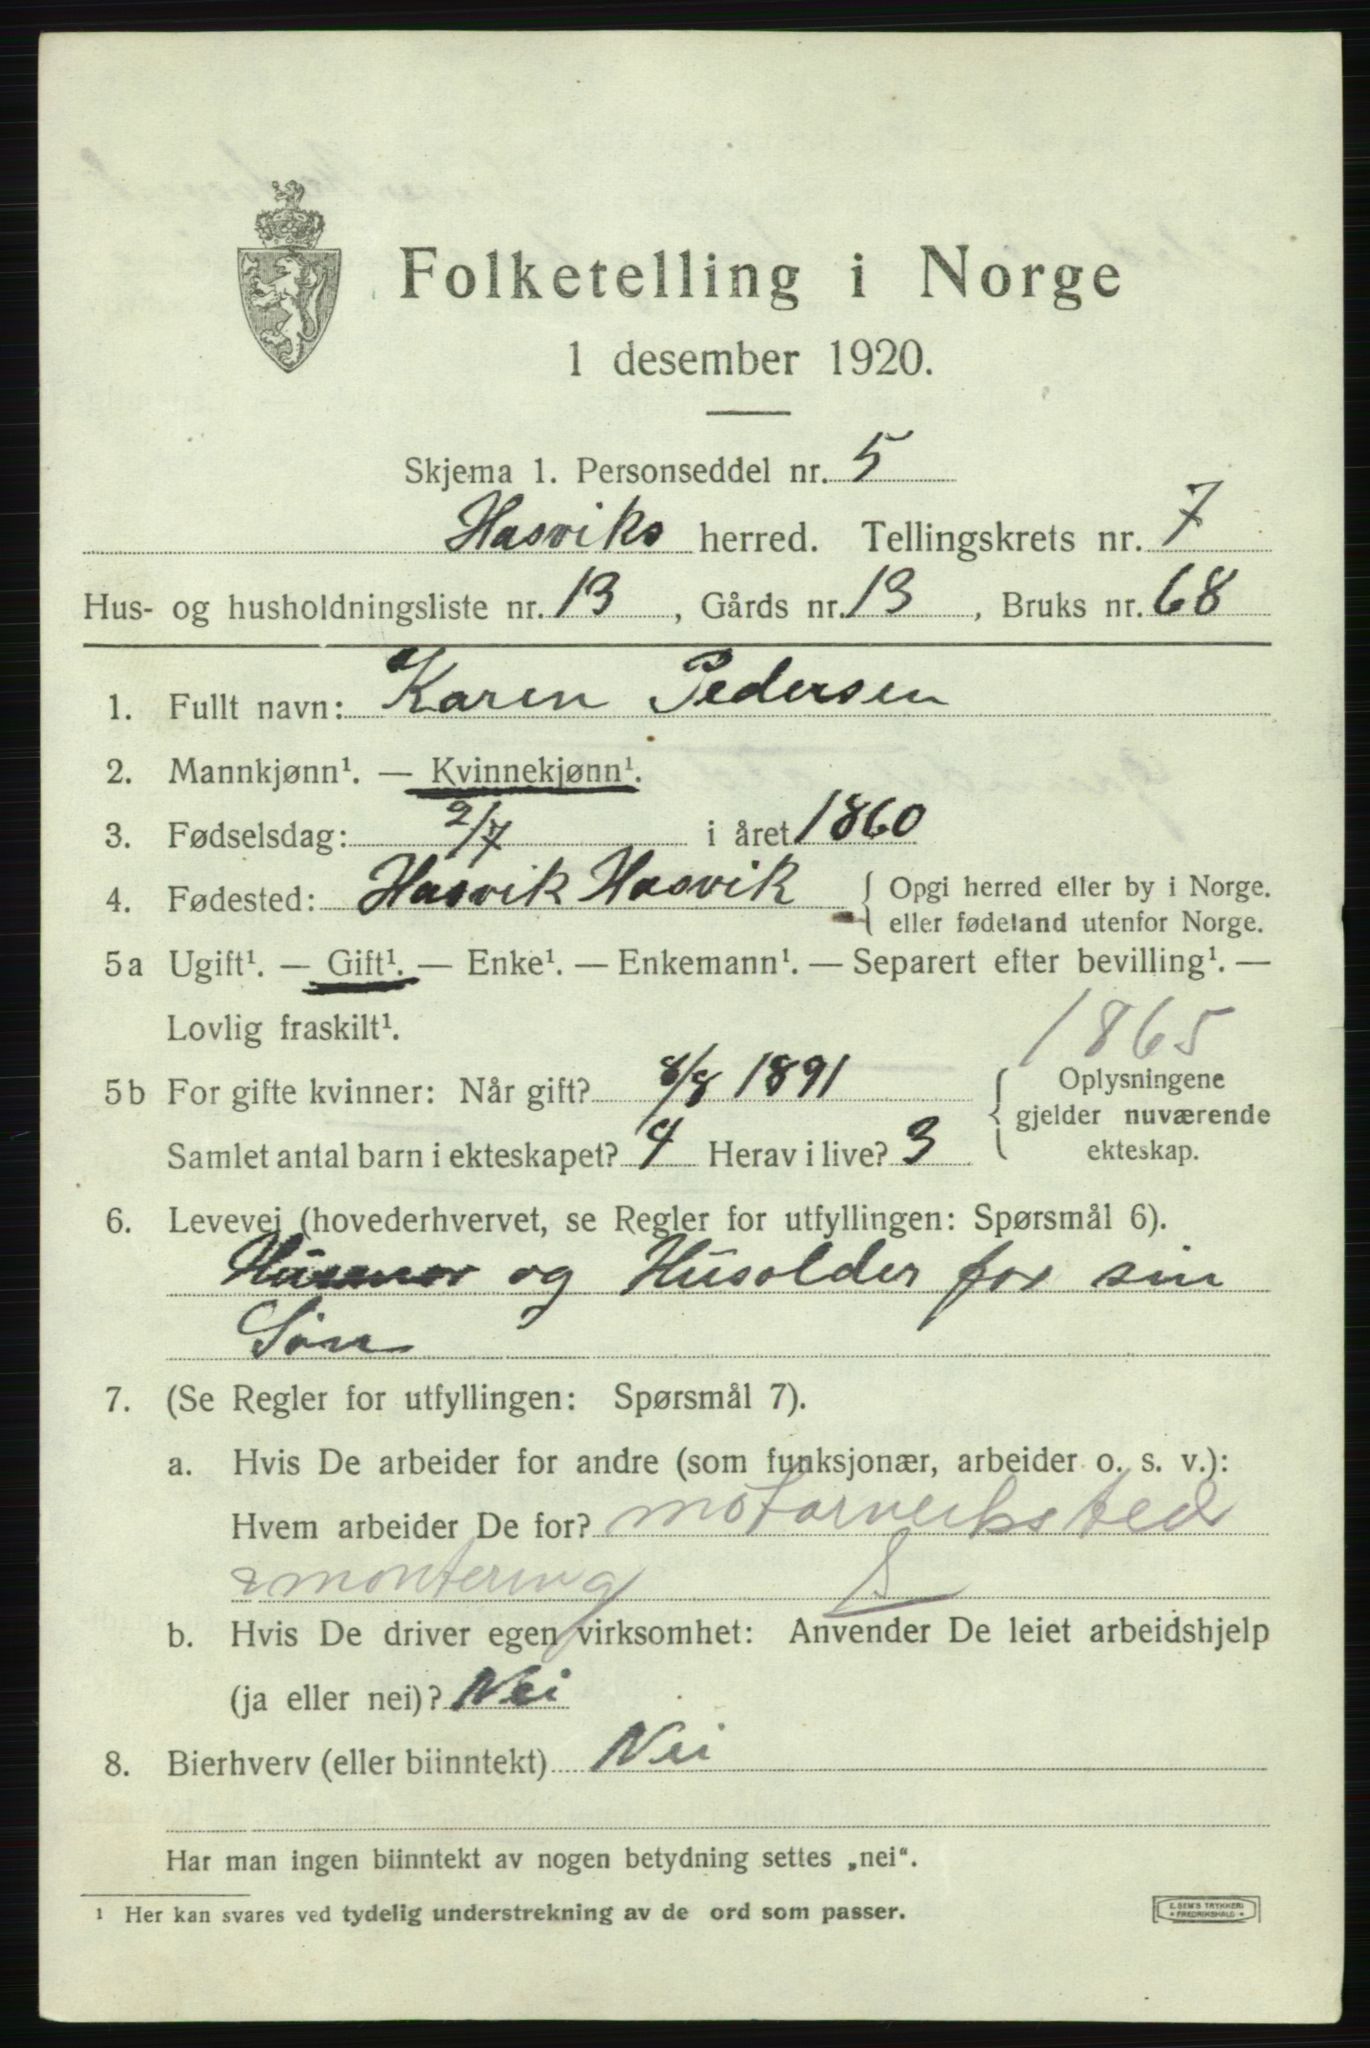 Folketelling i Norge
1 desember 1920.
Skjema 1. Personseddel nr. 5
Hasviks herred. Tellingskrets nr. 7
Hus- og husholdningsliste nr. 13, Gårds nr. 13, Bruks nr. 68
1. Fullt navn: Karen Pedersen
2. Mannkjønn¹. — Kvinnekjønn¹.
3. Fødselsdag: 2/7 i året 1860
4. Fødested: Hasvik Hasvik { Opgi herred eller by i Norge.
eller fødeland utenfor Norge.
5a Ugift¹. — Gift¹. — Enke¹. — Enkemann¹. — Separert efter bevilling¹. —
Lovlig fraskilt¹.
1865
5b For gifte kvinner: Når gift? 8/8 1891 { Oplysningene
gjelder nuværende
Samlet antal barn i ekteskapet? 4 Herav i live? 3
ekteskap.
6. Levevei (hovederhvervet, se Regler for utfyllingen: Spørsmål 6).
Husmor og Husolder for sin
Søn
7. (Se Regler for utfyllingen: Spørsmål 7).
a. Hvis De arbeider for andre (som funksjonær, arbeider o. s. v.):
Hvem arbeider De for? motorverksted
& montering S
b. Hvis De driver egen virksomhet: Anvender De leiet arbeidshjelp
(ja eller nei)? Nei
8. Bierhverv (eller biinntekt) Nei
Har man ingen biinntekt av nogen betydning settes „nei“.
¹ Her kan svares ved tydelig understrekning av de ord som passer.
E. SEM'S TRYKKERI
* FREDRIKSHALD *